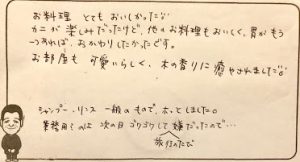 お料理 とても おいしかった♡
カニが 楽しみだったけど、他のお料理もおいしく、胃がもう
一つあれば、おかわりしたかったです。
お部屋も 可愛いらしく、木の香りに 癒やされました♡。
シャンプー、リンス 一般のもので、ホッとしました。
業務用?のは 次の日 ゴワゴワして 嫌だったので…
旅行のたび